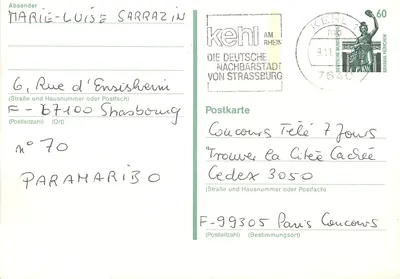 Absender
MARIE-LUISE SARRAZIN
6, Rue d'Ensisheim
(Straße und Hausnummer oder Postfach)
F-67100 Strasbourg
(Postleitzahl) (Ort)
n° 70
PARAMARIBO
kehl AM RHEIN
DIE DEUTSCHE
NACHBARSTADT
VON STRASSBURG
KEHL
60
Postkarte
Concours Télé 7 Jours
Trouver la Citée Cachée
Cedex 3050
(Straße und Hausnummer oder Postfach)
F-99305 Paris Concours
(Postleitzahl) (Bestimmungsort)